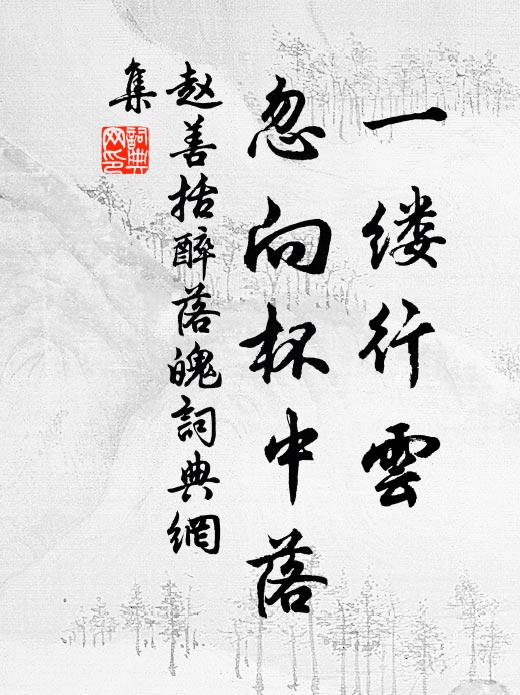 一缕行雲
忽向杯中落
赵善括醉落魄詞典網
集
詞典
网印